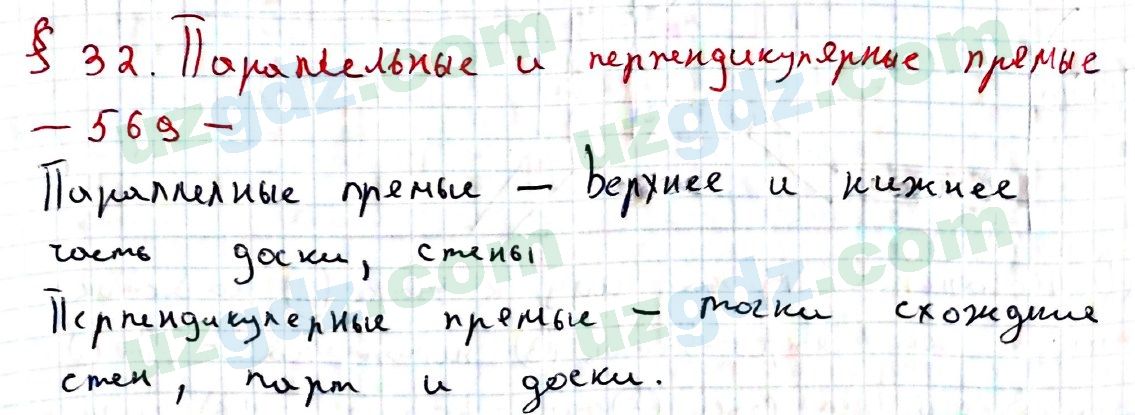 § 32. Параллельные и перпендикулярные прямые
— 569 —
Параллелные прямые — Верхнее и нижнее
часть доски, стены
Перпендикулерные прямые — точки схождние
стен, парт и доски.
uzgdz.com
uzgdz.com
uzgdz.com
uzgdz.com